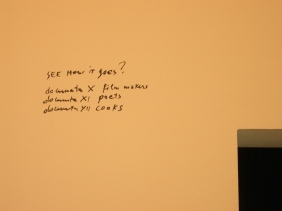 SEE HOW it goes?
documenta X film makers
documenta XI poets
documenta XII cooks